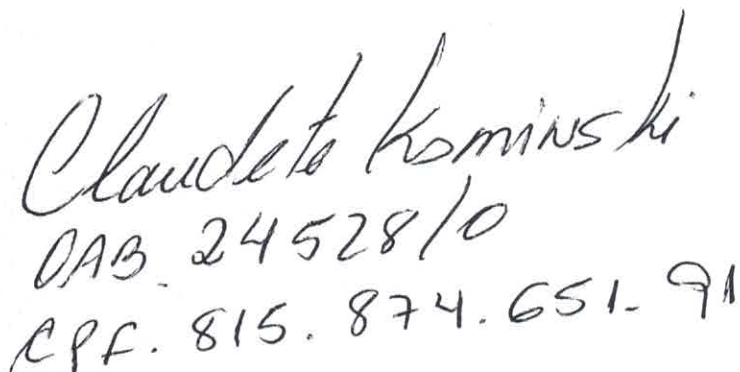 Claudete Kominski
OAB. 24528/0
CPF. 815.874.651-91